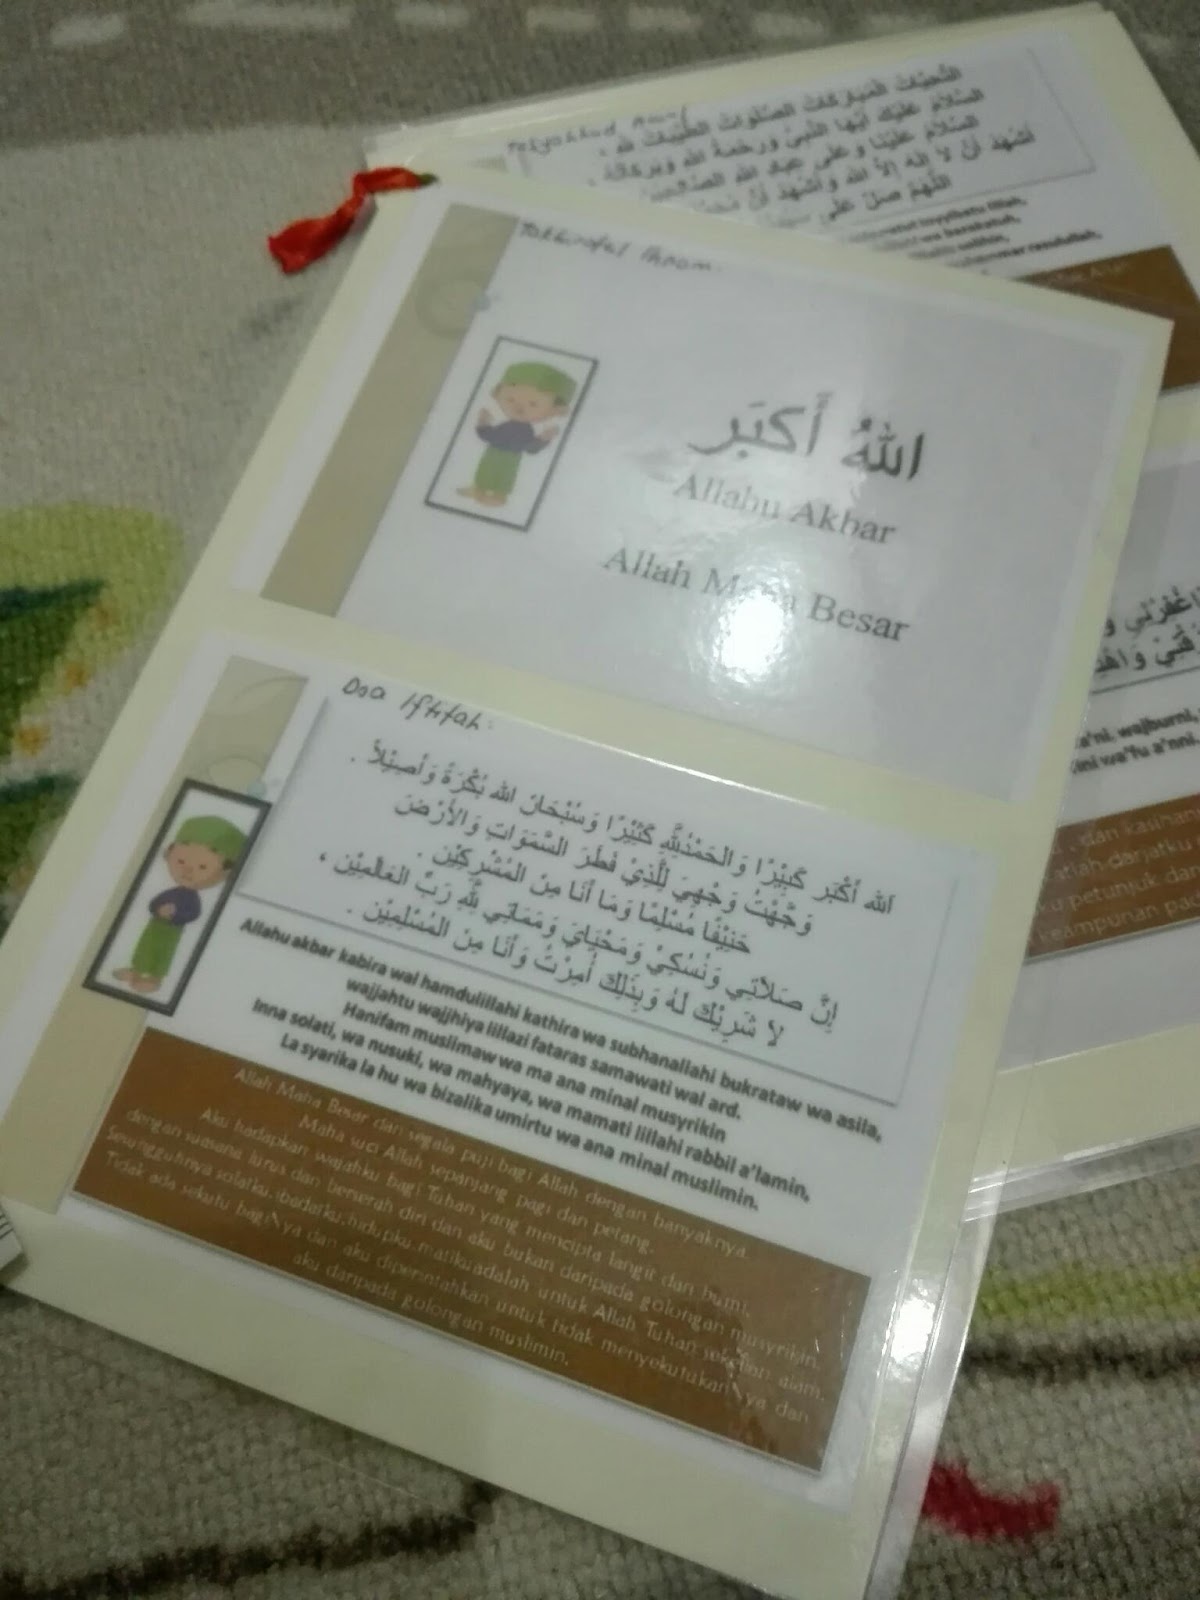 Tasyahhud Awal
التَّحِيَّاتُ المُبَارَكَاتُ الصَّلَوَاتُ الطَّيِّبَاتُ لله ،
السَّلاَمُ عَلَيْكَ أَيُّهَا النَّبِيُّ وَرَحْمَةُ الله وَبَرَكَاتُهُ ،
السَّلاَمُ عَلَيْنَا وَعَلَى عِبَادِ الله الصَّالِحِيْنَ
أَشْهَدُ أَنْ لاَ إِلهَ إِلاَّ الله وَأَشْهَدُ أَنَّ
اللَّهُمَّ صَلِّ عَلَى
Takbiratul Ihram.
اللهُ أَكبَر
Allahu Akbar
Allah Maha Besar
Doa Iftitah:
اَلله أَكْبَر كَبِيْرًا وَالحَمْدُ لِلَّهِ كَثِيْرًا وَسُبْحَانَ الله بُكْرَةً وَأَصِيْلاً .
وَجَّهْتُ وَجْهِيَ لِلَّذِيْ فَطَرَ السَّمَوَاتِ وَالأَرْضَ
حَنِيْفًا مُسْلِمًا وَمَا أَنَا مِنَ المُشْرِكِيْن .
إِنَّ صَلاَتِي وَنُسُكِيْ وَمَحْيَايَ وَمَمَاتِي لِلَّهِ رَبِّ العَالَمِيْن ،
لاَ شَرِيْكَ لَهُ وَبِذَلِكَ أُمِرْتُ وَأَنَا مِنَ المُسْلِمِيْن .
Allahu akbar kabira wal hamdulillahi kathira wa subhanallahi bukrataw wa asila,
wajjahtu wajjhiya lillazi fataras samawati wal ard.
Hanifam muslimaw wa ma ana minal musyrikin
Inna solati, wa nusuki, wa mahyaya, wa mamati lillahi rabbil a'lamin,
La syarika la hu wa bizalika umirtu wa ana minal muslimin.
Allah Maha Besar dan segala puji bagi Allah dengan banyaknya.
Maha suci Allah sepanjang pagi dan petang.
Aku hadapkan wajahku bagi Tuhan yang mencipta langit dan bumi,
dengan suasana lurus dan berserah diri dan aku bukan daripada golongan musyrikin.
Sesungguhnya solatku, ibadatku, hidupku, matiku adalah untuk Allah Tuhan sekelian alam.
Tidak ada sekutu bagiNya dan aku diperintahkan untuk tidak menyekutukanNya dan
aku daripada golongan muslimin.
wajburni,
wa'fu a'nni.
dan
darjatku
petunjuk dan
keampunan